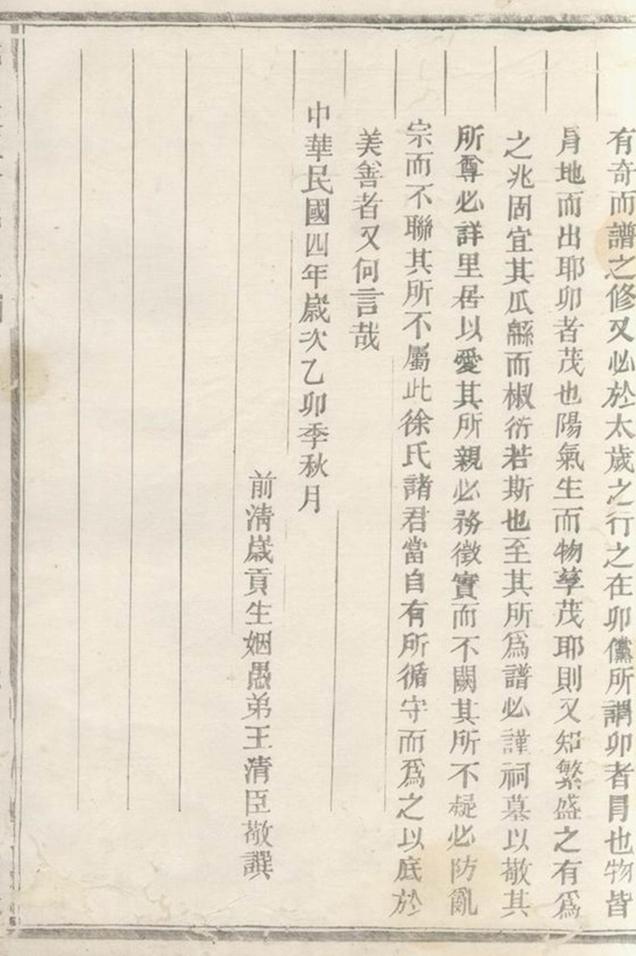 有奇而譜之修又必於太歲之行之在卯儻所謂卯者冐也物皆
冐地而出耶卯者茂也陽氣生而物孳茂耶則又知繁盛之有爲
之兆固宜其瓜緜而椒衍若斯也至其所爲譜必謹祠墓以敬其
所尊必詳里居以愛其所親必務徵實而不闕其所不疑必防亂
宗而不聯其所不屬此徐氏諸君當自有所循守而爲之以底於
美善者又何言哉
中華民國四年歲次乙卯季秋月
前清歲貢生姻愚弟王清臣敬譔